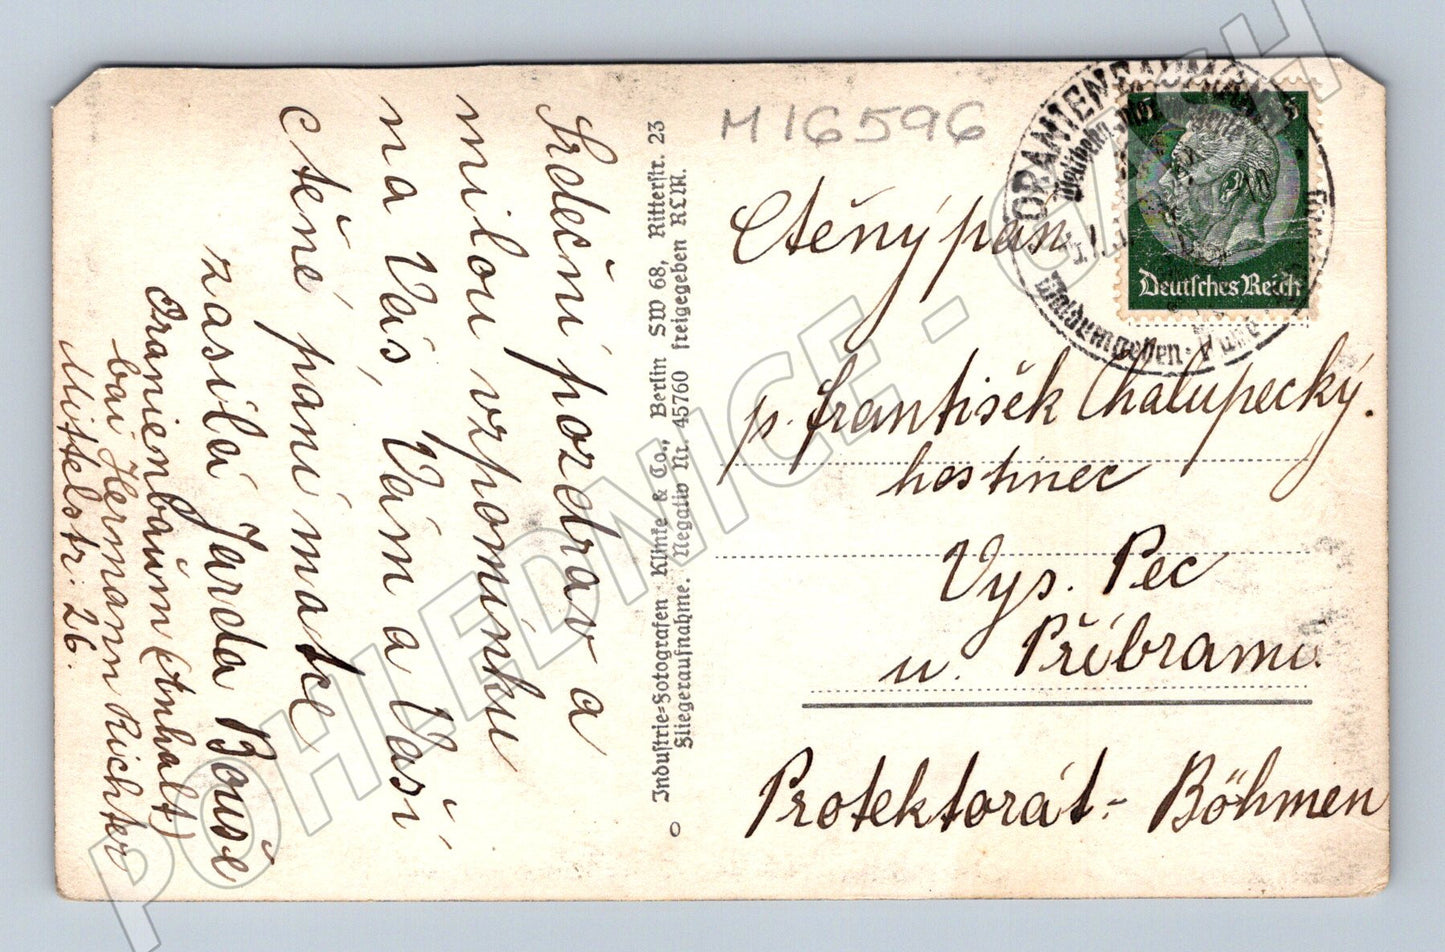 Srdečni pozdrav a
milou vzpomínku
na Vás, Vám a Vaší
ctěné paní matce
zasílá Jarda Bouše
Oranienbaum (Anhalt)
bai Hermann Richter
Mittelstr. 26.
Industrie=Fotografen Klinke & Co., Berlin SW 68, Ritterstr. 23
Fliegeraufnahme. Negativ Nr. 45760 freigegeben RLM.
M 16596
ORANIENBAUM
Deutsches Reich
Ctěný pán
p. František Chalupecký.
hostinec
Vys. Pec
u. Příbramu
Protektorát - Böhmen
POHLEDNICE - CZ